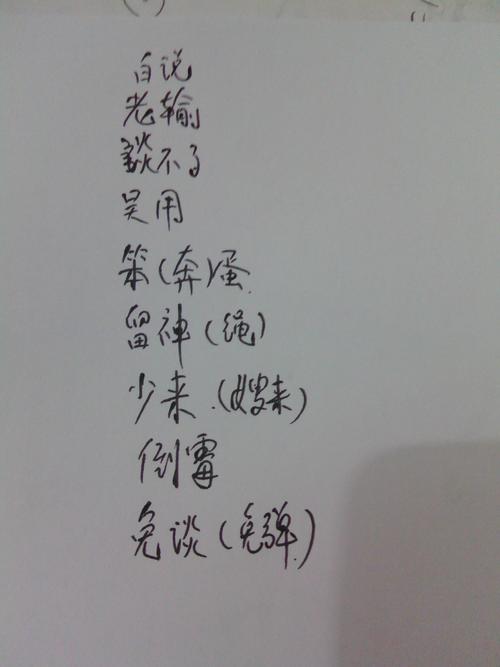 白说
老输
谈不了
吴用
笨(奔)蛋
留神(绳)
少来.(嫂来)
倒霉
免谈(免弹)